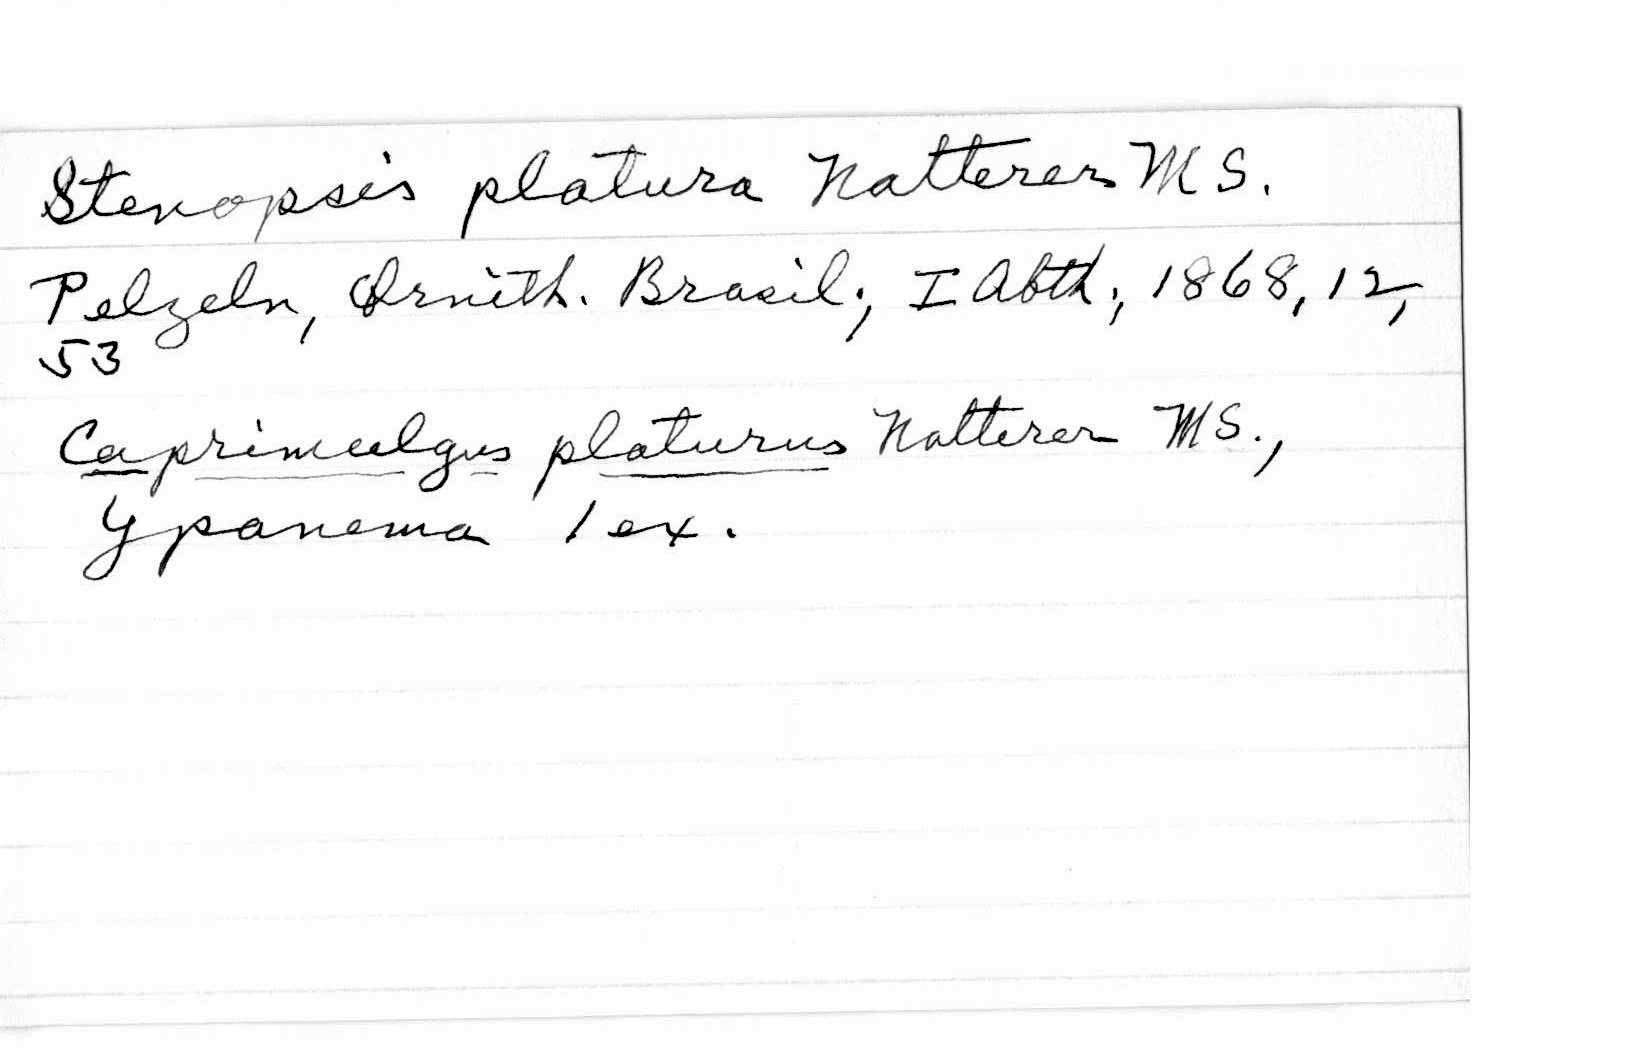 Stenopsis platura Natterer MS.
Pelzeln, Ornith. Brasil., I Abth., 1868, 12,
53
Caprimulgus platurus Natterer MS.,
Ypanema 1 ex.